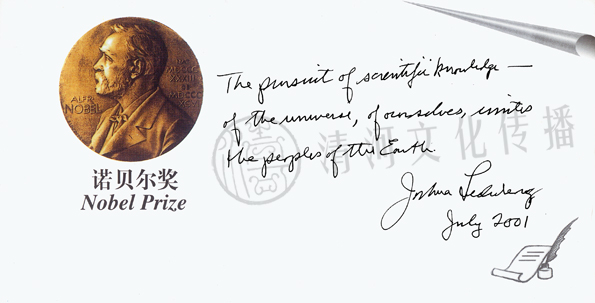 ALFR.
NOBEL
诺贝尔奖
Nobel Prize
The pursuit of scientific knowledge —
of the universe, of ourselves, unites
the peoples of the Earth.
Joshua Lederberg
July 2001
清河文化传播